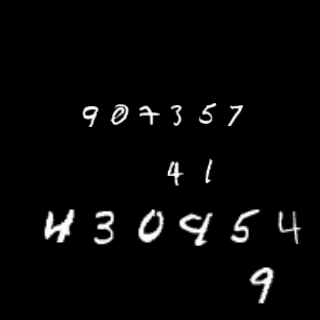 907357
41
430954
9